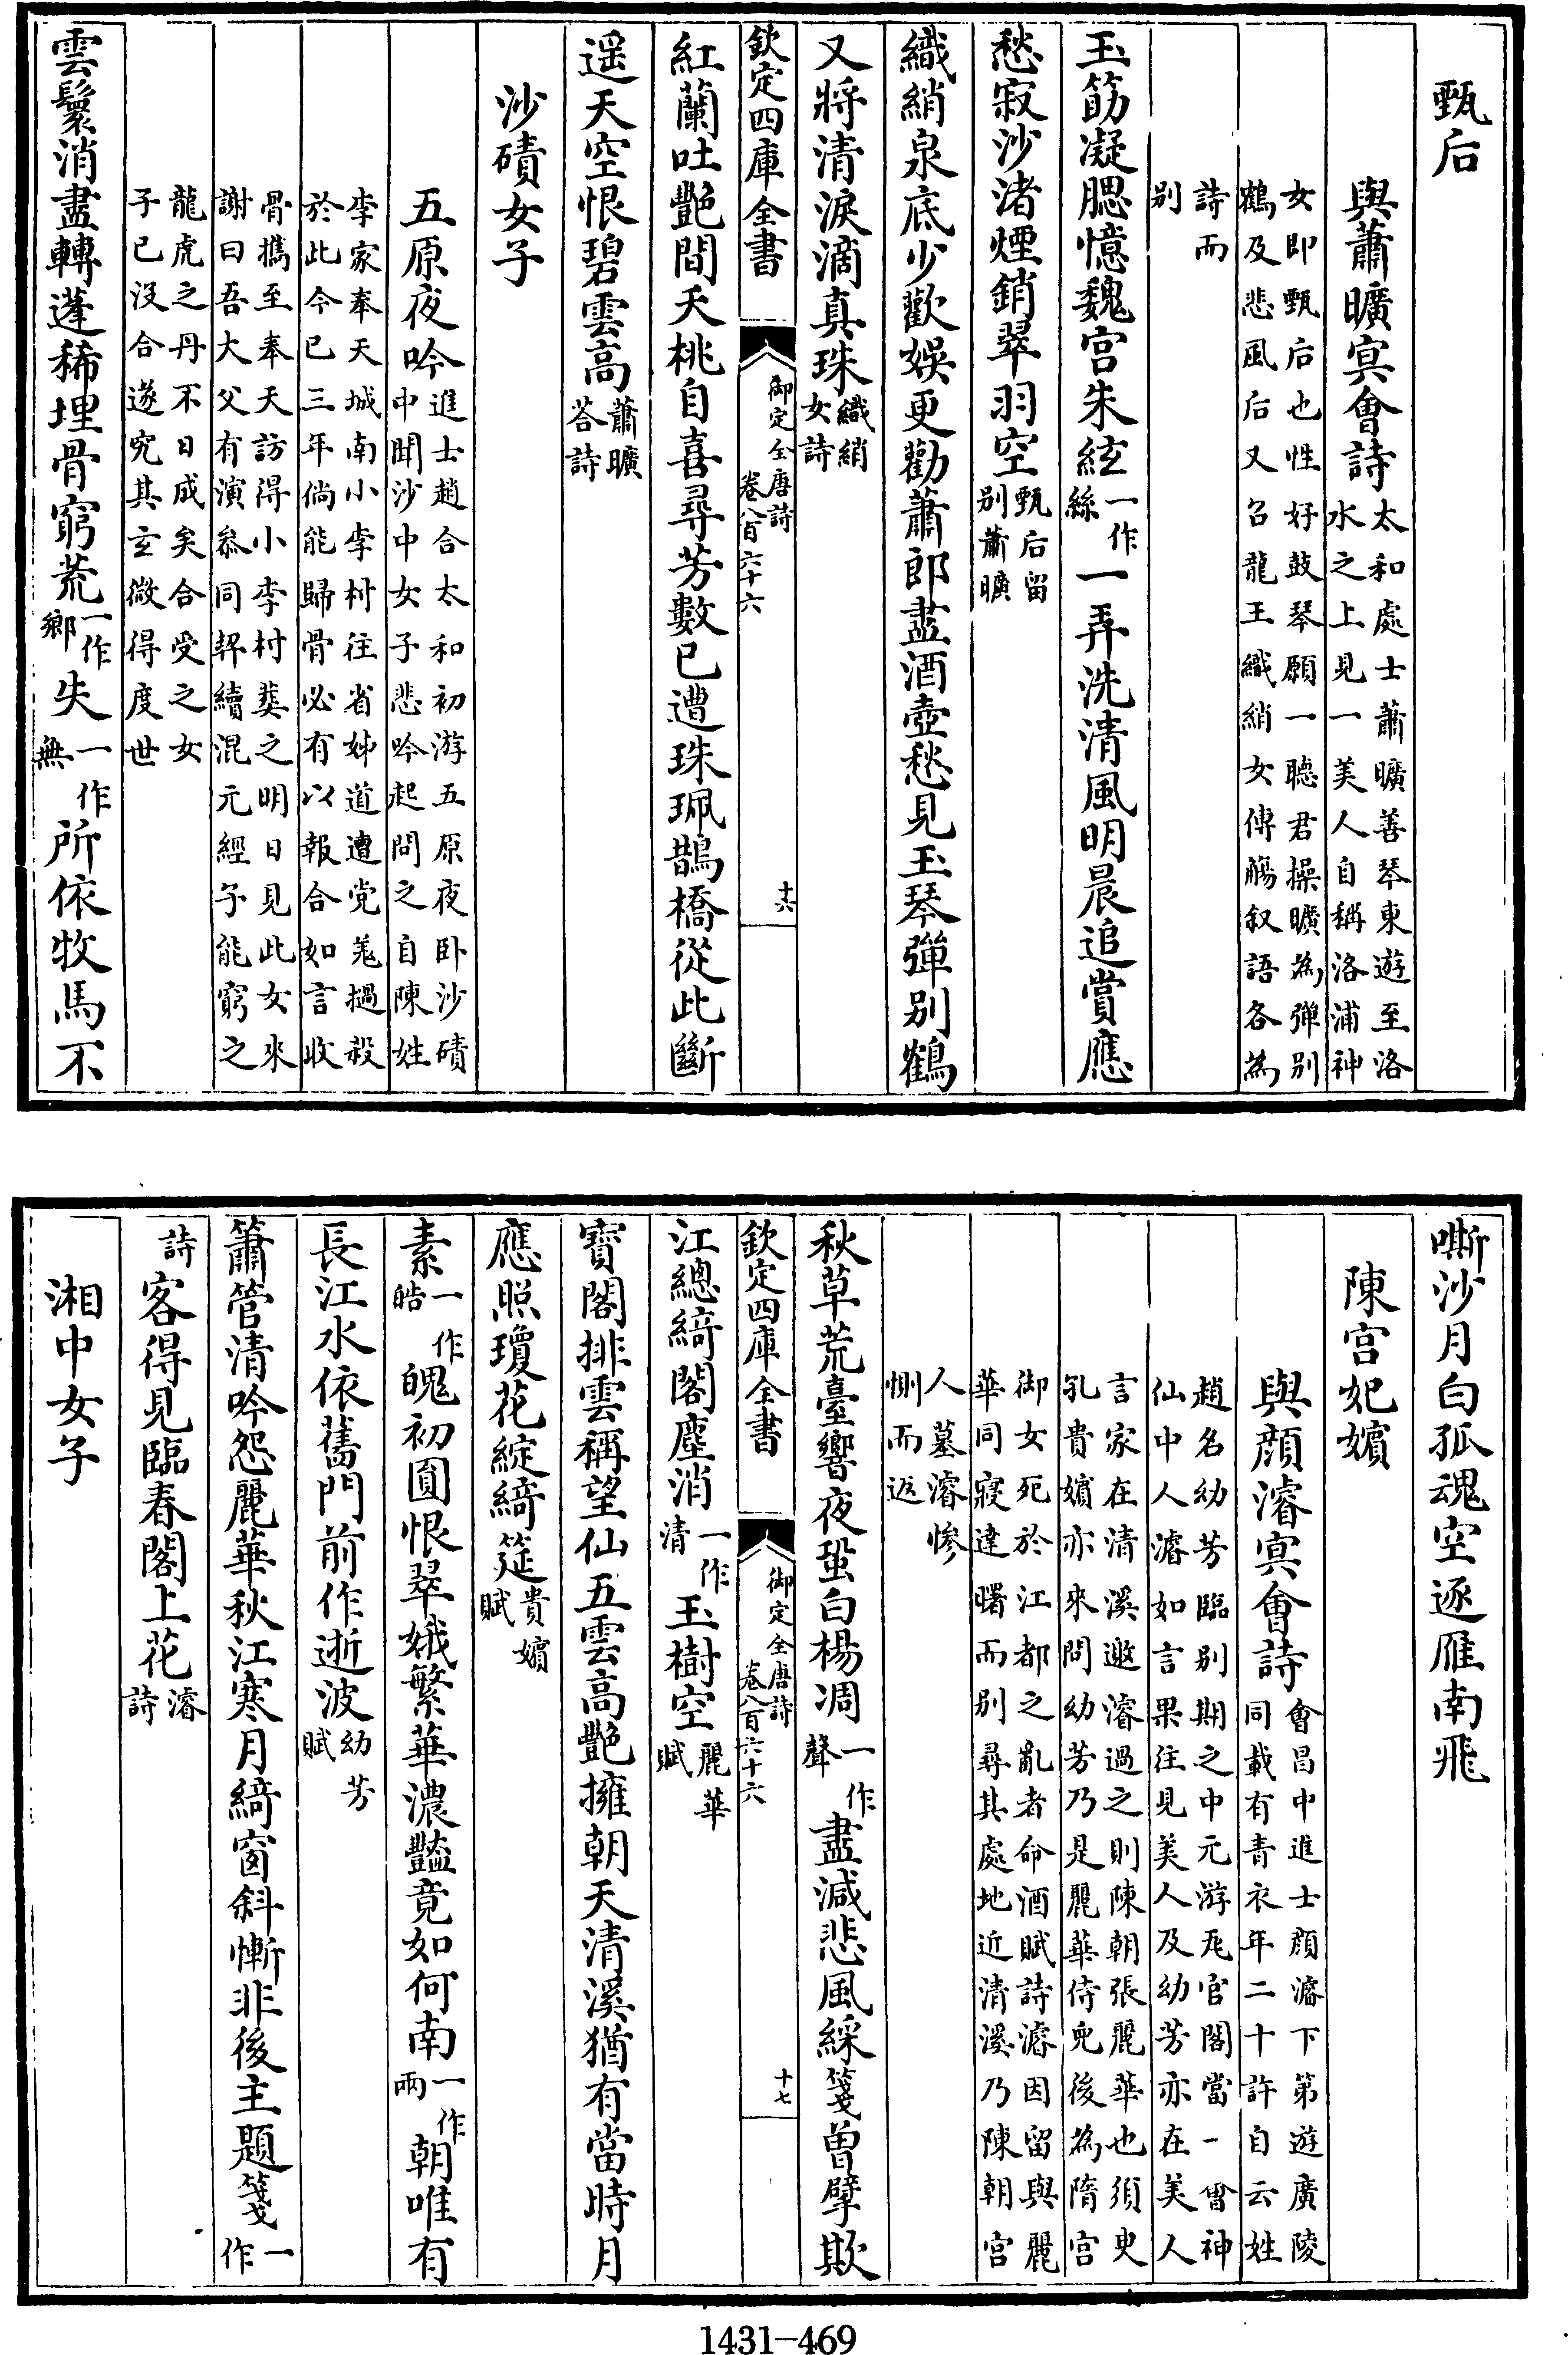 甄后
與蕭曠㝠會詩太和處士蕭曠善琴東遊至洛水之上見一美人自稱洛浦神
女即甄后也性好鼓琴願一聽君操曠為彈别鶴及悲風后又召龍王織綃女傳觴叙語各為
詩而别
玉筯凝腮憶魏宫朱絃一作絲一弄洗清風明晨追賞應
愁寂沙渚煙銷翠羽空甄后留别蕭曠
織綃泉底少歡娛更勸蕭郎盡酒壺愁見玉琴彈别鶴
又將清淚滴真珠織綃女詩
欽定四庫全書
御定全唐詩
卷八百六十六
十六
紅蘭吐艷間夭桃自喜尋芳數已遭珠珮鵲橋從此斷
遥天空恨碧雲高蕭曠荅詩
沙磧女子
五原夜吟進士趙合太和初游五原夜卧沙磧中聞沙中女子悲吟起問之自陳姓
李家奉天城南小李村往省姊道遭党羌撾殺於此今已三年倘能歸骨必有以報合如言收
骨攜至奉天訪得小李村葬之明日見此女來謝曰吾大父有演叅同契續混元經子能窮之
龍虎之丹不日成矣合受之女子已沒合遂究其𤣥微得度世
雲鬟消盡轉蓬稀埋骨窮荒一作鄉失一作無所依牧馬不
嘶沙月白孤魂空逐雁南飛
陳宫妃嬪
與顔濬㝠會詩會昌中進士顔濬下第遊廣陵同載有青衣年二十許自云姓
趙名幼芳臨别期之中元游瓦官閣當一會神仙中人濬如言果往見美人及幼芳亦在美人
言家在清溪邀濬過之則陳朝張麗華也須臾孔貴嬪亦來問幼芳乃是麗華侍兒後為隋宫
御女死於江都之亂者命酒賦詩濬因留與麗華同寢達曙而别尋其處地近清溪乃陳朝宫
人墓濬慘惻而返
秋草荒臺響夜蛩白楊凋一作聲盡減悲風綵箋曾擘欺
欽定四庫全書
御定全唐詩
卷八百六十六
十七
江總綺閣塵消一作清玉樹空麗華賦
寶閣排雲稱望仙五雲高艷擁朝天清溪猶有當時月
應照瓊花綻綺筵貴嬪賦
素一作皓魄初圓恨翠娥繁華濃豔竟如何南一作兩朝唯有
長江水依舊門前作逝波幼芳賦
簫管清吟怨麗華秋江寒月綺窗斜慚非後主題箋一作
詩客得見臨春閣上花濬詩
湘中女子
1431-469